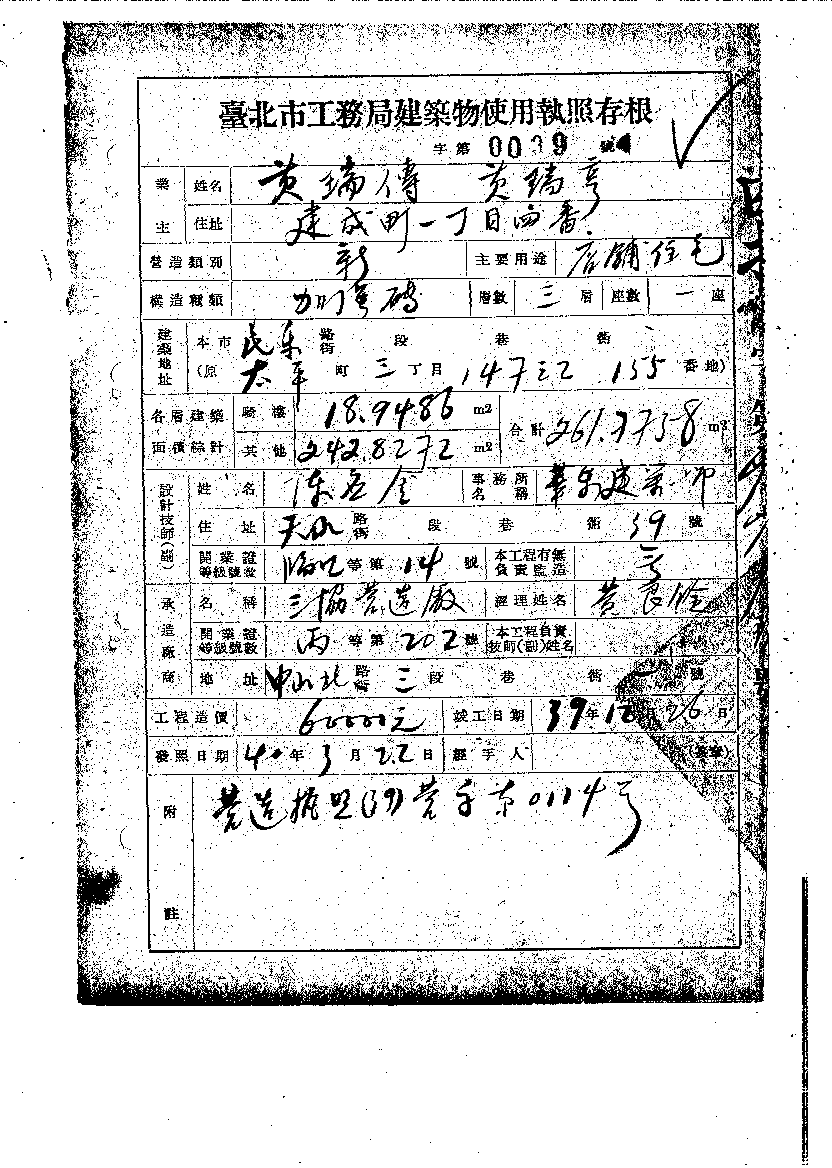 臺北市工務局建築物使用執照存根
字第 0039 號
業主 姓名 黃瑞傳 黃瑞亨
住址 建成町一丁目四番
營造類別 新 主要用途 店舖住宅
構造種類 加強磚 層數 三 層 座數 一 座
建築地址 本市 民樂 路街 段 巷 衖
(原 太平 町 三 丁目 147之2 155 番地)
各層建築面積綜計 騎樓 18.9486 m2 合計 261.7758 m2
其他 242.8272 m2
設計技師(副) 姓名 陳 金 事務所名稱 建築師
住址 天水 路街 段 巷 衖 39 號
開業證等級號數 臨 等第 14 號 本工程有無負責監造
承造廠商 名稱 三協營造廠 經理姓名 黃良
開業證等級號數 丙 等第 202 號 本工程負責技師(副)姓名
地址 中山北 路街 三 段 巷 衖 號
工程造價 60000元 竣工日期 39年12月26日
發照日期 40年3月22日 經手人 (簽章)
附註 營造執照(39)營字第0114号